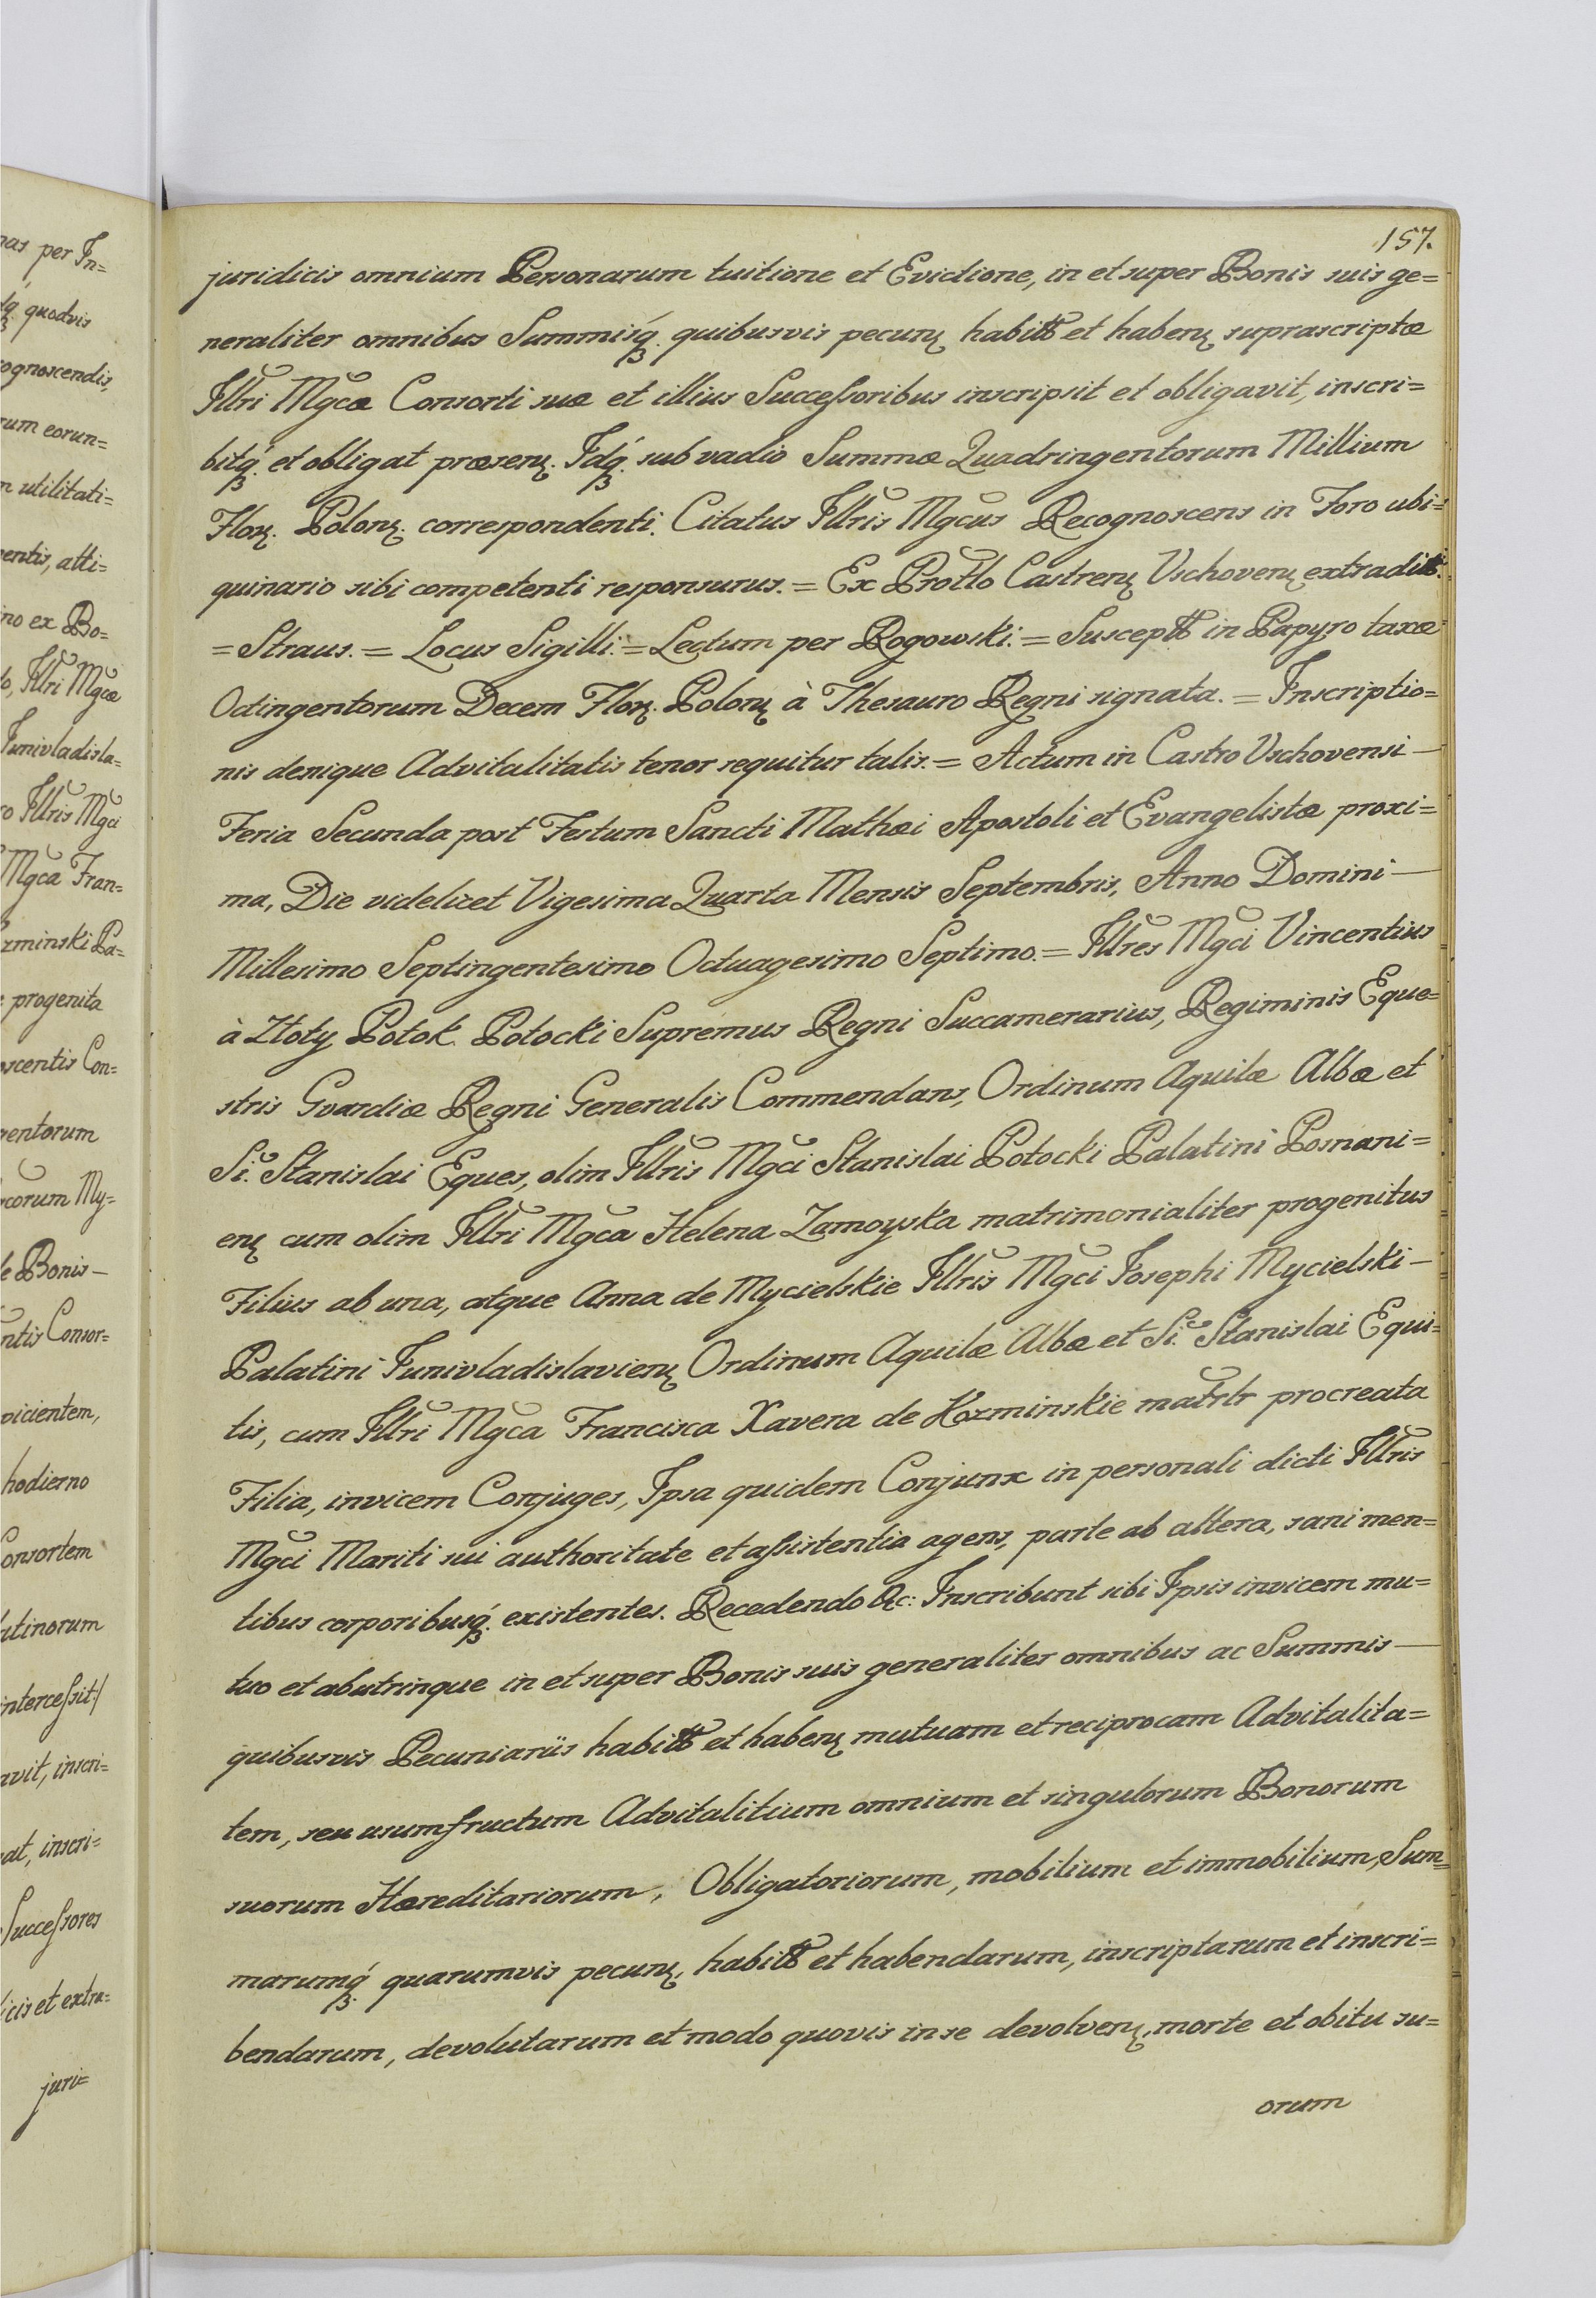 nas per In=
dq. quodvis
cognoscendis,
rum eorun=
m utilitati=
entis, atti=
no ex Bo=
Illri Mgcæ
Junivladisla=
ro Illris Mgci
Mgca Fran=
zminski Pa=
progenita
oscentis Con=
gentorum
gcorum My=
de Bonis —
ntis Consor=
picientem,
hodierno
Consortem
latinorum
intercessit:/
avit, inscri=
gat, inscri=
Successores
icis et extra=
juri=
157.
juridicis omnium Personarum tuitione et Evictione, in et super Bonis suis ge=
neraliter omnibus Summisq́. quibusvis pecunꝫ habitt et habenꝫ suprascriptæ
Illri Mgcæ Consorti suæ et illius Successoribus inscripsit et obligavit, inscri=
bitq́. et obligat præsenꝫ. Idq́. sub vadio Summæ Quadringentorum Millium
Florꝫ. Polonꝫ. correspondenti. Citatus Illris Mgcus Recognoscens in Foro ubi=
quinario sibi competenti responsurus. = Ex Protlo Castrenꝫ Vschovenꝫ extraditt.
= Straus. = Locus Sigilli. = Lectum per Rogowski. = Susceptt in Papyro taxæ
Octingentorum Decem Florꝫ. Polonꝫ à Thesauro Regni signata. = Inscriptio=
nis denique Advitalitatis tenor sequitur talis. = Actum in Castro Vschovensi —
Feria Secunda post Festum Sancti Mathæi Apostoli et Evangelistæ proxi=
ma, Die videlicet Vigesima Quarta Mensis Septembris, Anno Domini —
Millesimo Septingentesimo Octuagesimo Septimo. = Illres Mgci Vincentius
à Złoty Potok Potocki Supremus Regni Succamerarius, Regiminis Eque=
stris Gvardiæ Regni Generalis Commendans, Ordinum Aquilæ Albæ et
Si. Stanislai Eques, olim Illris Mgci Stanislai Potocki Palatini Posnani=
enꝫ cum olim Illri Mgca Helena Zamoyska matrimonialiter progenitus
Filius ab una, atque Anna de Mycielskie Illris Mgci Josephi Mycielski —
Palatini Junivladislavienꝫ Ordinum Aquilæ Albæ et Si. Stanislai Equi=
tis, cum Illri Mgca Francisca Xavera de Kozminskie matrlr procreata
Filia, invicem Conjuges, Ipsa quidem Conjunx in personali dicti Illris
Mgci Mariti sui authoritate et assistentia agens, parte ab altera, sani men=
tibus corporibusq́. existentes. Recedendo &c: Inscribunt sibi Ipsis invicem mu=
tuo et abutrinque in et super Bonis suis generaliter omnibus ac Summis —
quibusvis Pecuniariis habitt et habenꝫ mutuam et reciprocam Advitalita=
tem, seu usumfructum Advitalitium omnium et singulorum Bonorum
suorum Hæreditariorum, Obligatoriorum, mobilium et immobilium, Sum=
marumq́. quarumvis pecunꝫ. habitt et habendarum, inscriptarum et inscri=
bendarum, devolutarum et modo quovis in se devolvenꝫ, morte et obitu su=
orum